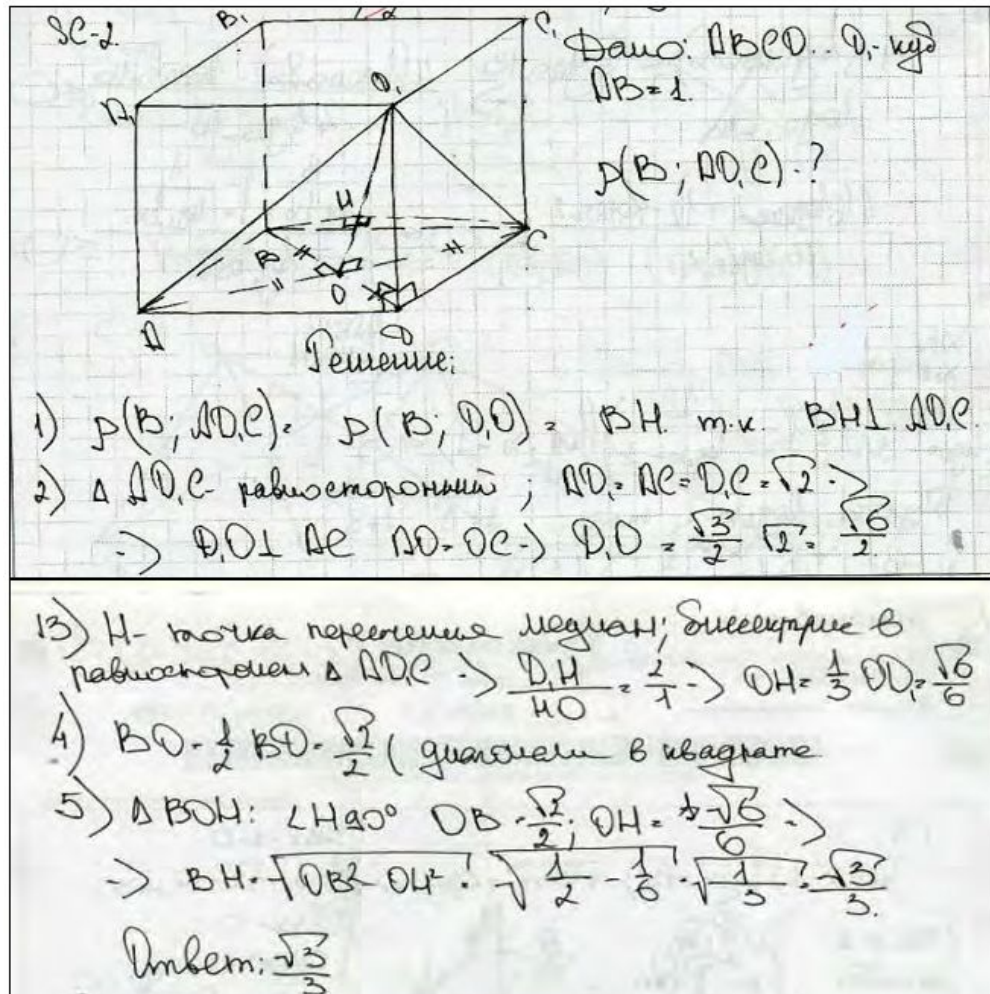 SC-2
Дано: ABCD..D₁ - куб
AB = 1.
ρ(B; AD₁C) - ?
B₁
C₁
A₁
D₁
H
B
C
O
A
D
Решение:
1) ρ(B; AD₁C) = ρ(B; D₁O) = BH т.к. BH ⊥ AD₁C.
2) Δ AD₁C - равносторонний; AD₁ = AC = D₁C = √2 ->
-> D₁O ⊥ AC AO = OC -> D₁O = √3/2 √2 = √6/2
13) H - точка пересечения медиан; биссектрис в
равностороннем Δ AD₁C -> D₁H/HO = 2/1 -> OH = 1/3 OD₁ = √6/6
4) BO = 1/2 BD = √2/2 (диагонали в квадрате
5) Δ BOH: ∠H 90° OB = √2/2; OH = √6/6 ->
-> BH = √(OB² - OH²) = √(1/2 - 1/6) = √(1/3) = √3/3.
Ответ: √3/3